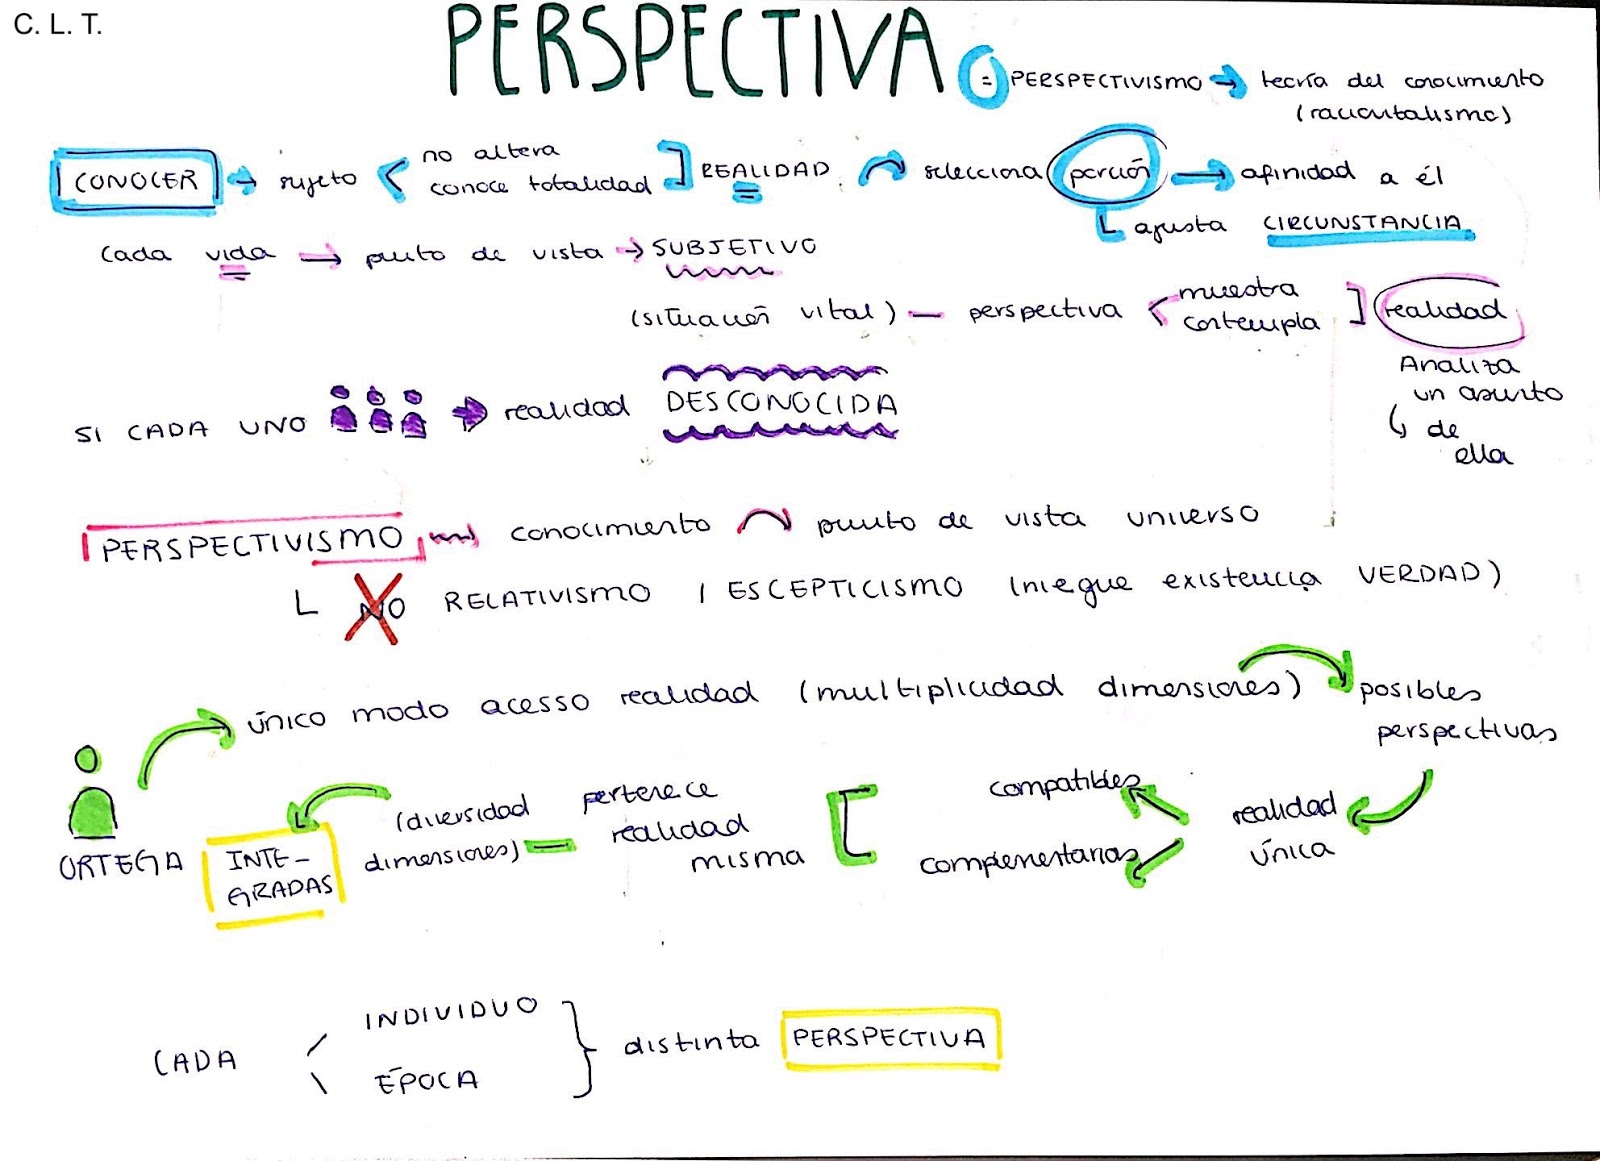 C. L. T.
PERSPECTIVA
= PERSPECTIVISMO → teoría del conocimiento
(raciovitalismo)
CONOCER → sujeto < no altera
conoce totalidad ] REALIDAD selecciona porción → afinidad a él
ajusta CIRCUNSTANCIA
Cada vida → punto de vista → SUBJETIVO
(situación vital) — perspectiva < muestra
contempla ] realidad
Analiza
un asunto
de
ella
SI CADA UNO → realidad DESCONOCIDA
PERSPECTIVISMO → conocimiento punto de vista universo
NO RELATIVISMO / ESCEPTICISMO (niegue existencia VERDAD)
único modo acesso realidad (multiplicidad dimensiones) posibles
perspectivas
realidad
única
compatibles
complementarias
pertenece
realidad
misma
(diversidad
dimensiones)
INTE-
GRADAS
ORTEGA
CADA
INDIVIDUO
ÉPOCA
distinta PERSPECTIVA